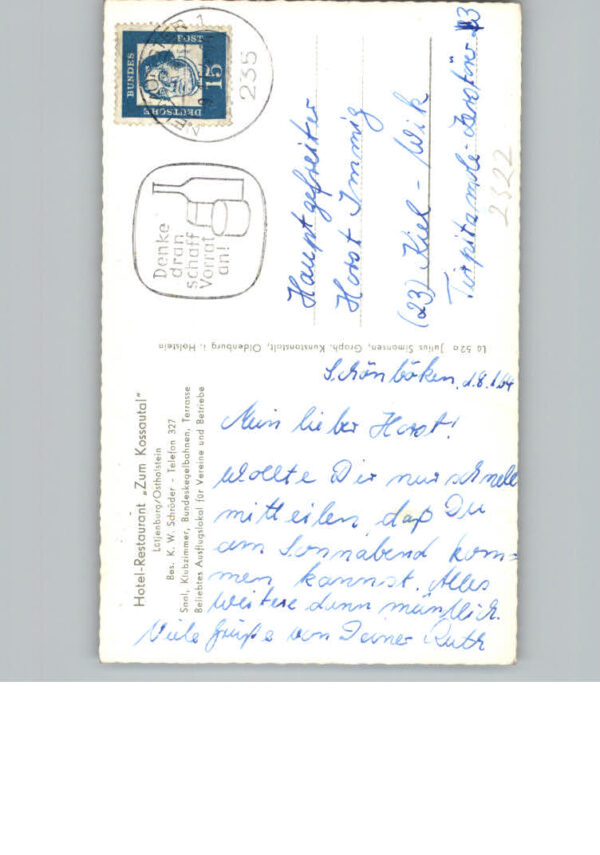 Hotel-Restaurant „Zum Kossautal"
Lütjenburg/Ostholstein
Bes. K. W. Schröder - Telefon 327
Saal, Klubzimmer, Bundeskegelbahnen, Terrasse
Beliebtes Ausflugslokal für Vereine und Betriebe
Schönböken, d. 8.1.64
Mein lieber Horst!
Wollte Dir nur schnell
mitteilen, daß Du
am Sonnabend kom=
men kannst. Alles
weitere dann mündlich.
Viele Grüße von Deiner Ruth
Lü 52a Julius Simonsen, Graph. Kunstanstalt, Oldenburg i. Holstein
DEUTSCHE
BUNDES
POST
15
235
Denke
dran
schaff
Vorrat
an!
Hauptgefreiter
Horst Immig
(23) Kiel - Wik
Tirpitzmole
2322